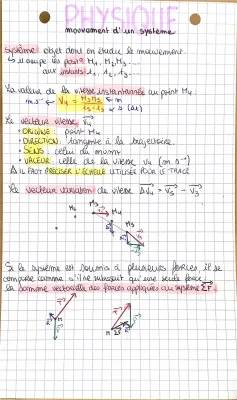 PHYSIQUE
mouvement d'un système
Système objet dont on étudie le mouvement
↳ il occupe les positions M1, M2, M3....
aux instants t1, t2, t3...
La valeur de la vitesse instantanée au point M4
m.s⁻¹ ← V4 = M3M5 ← m
t5-t3 ← s (Δt)
Le vecteur vitesse V4
• ORIGINE : point M4
• DIRECTION : tangente à la trajectoire
• SENS : celui du mvmt
• VALEUR : celle de la vitesse V4 (m.s⁻¹)
⚠ IL FAUT PRÉCISER L'ÉCHELLE UTILISÉE POUR LE TRACÉ
Le vecteur variation de vitesse ΔV4 = V5 - V3
M3
M4
M5
Si le système est soumis à plusieurs forces il se
comporte comme s'il ne subissait qu'une seule force :
la somme vectorielle des forces appliquées au système ΣF
M
M
ΣF